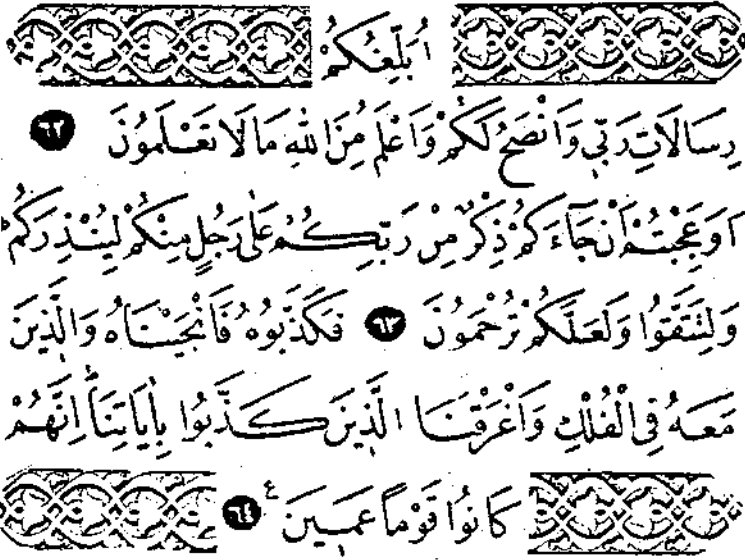 اُبَلِّغُكُمْ
رِسَالَاتِ رَبّٖي وَاَنْصَحُ لَكُمْ وَاَعْلَمُ مِنَ اللهِ مَا لَا تَعْلَمُونَ ٦٢
اَوَعَجِبْتُمْ اَنْ جَٓاءَكُمْ ذِكْرٌ مِنْ رَبِّكُمْ عَلٰى رَجُلٍ مِنْكُمْ لِيُنْذِرَكُمْ
وَلِتَتَّقُوا وَلَعَلَّكُمْ تُرْحَمُونَ ٦٣ فَكَذَّبُوهُ فَاَنْجَيْنَاهُ وَالَّذٖينَ
مَعَهُ فِي الْفُلْكِ وَاَغْرَقْنَا الَّذٖينَ كَذَّبُوا بِاٰيَاتِنَاۜ اِنَّهُمْ
كَانُوا قَوْماً عَمٖينَ ع ٦٤